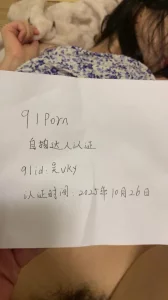 91Porn
自拍达人认证
91id:吴vky
认证时间:2025年10月26日